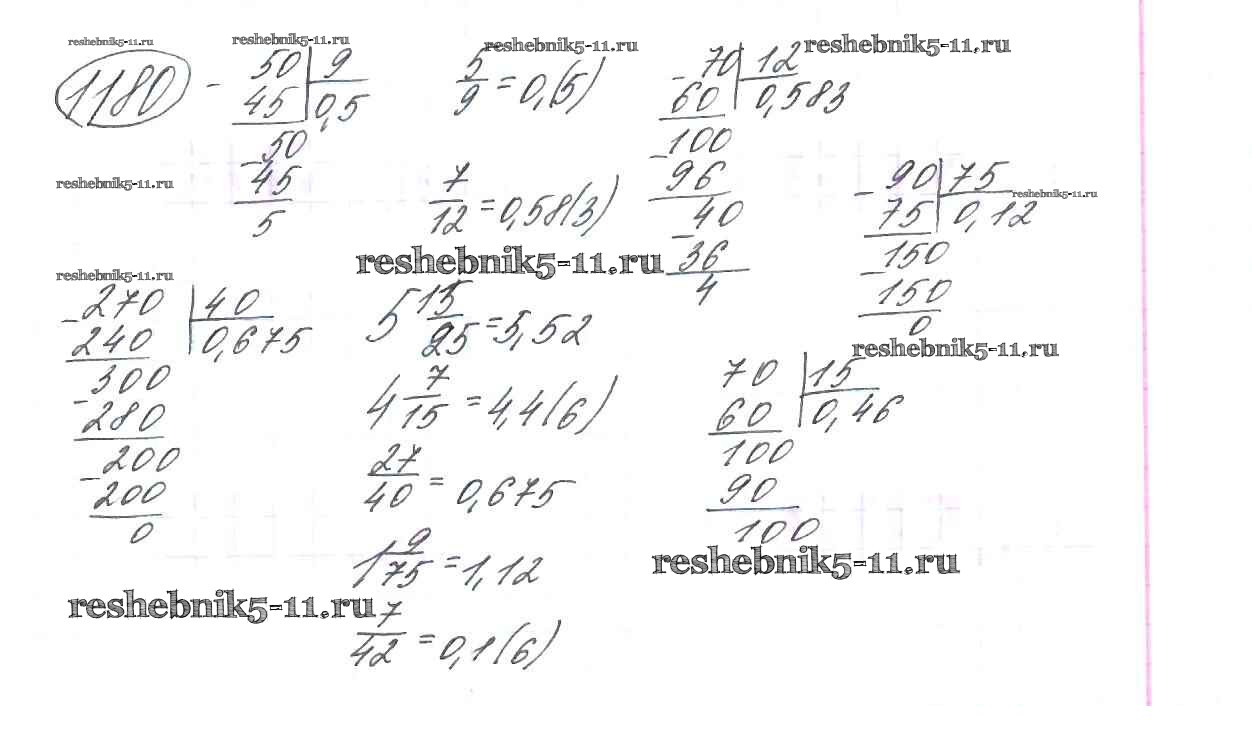 reshebnik5-11.ru
reshebnik5-11.ru
reshebnik5-11.ru
reshebnik5-11.ru
1180
- 50 | 9
45 | 0,5
- 50
45
5
5/9 = 0,(5)
- 70 | 12
60 | 0,583
- 100
96
- 40
36
4
reshebnik5-11.ru
7/12 = 0,58(3)
- 90 | 75
75 | 0,12
- 150
150
0
reshebnik5-11.ru
reshebnik5-11.ru
reshebnik5-11.ru
- 270 | 40
240 | 0,675
- 300
280
- 200
200
0
5 13/25 = 5,52
4 7/15 = 4,4(6)
27/40 = 0,675
1 9/75 = 1,12
7/42 = 0,1(6)
reshebnik5-11.ru
70 | 15
60 | 0,46
100
90
100
reshebnik5-11.ru
reshebnik5-11.ru